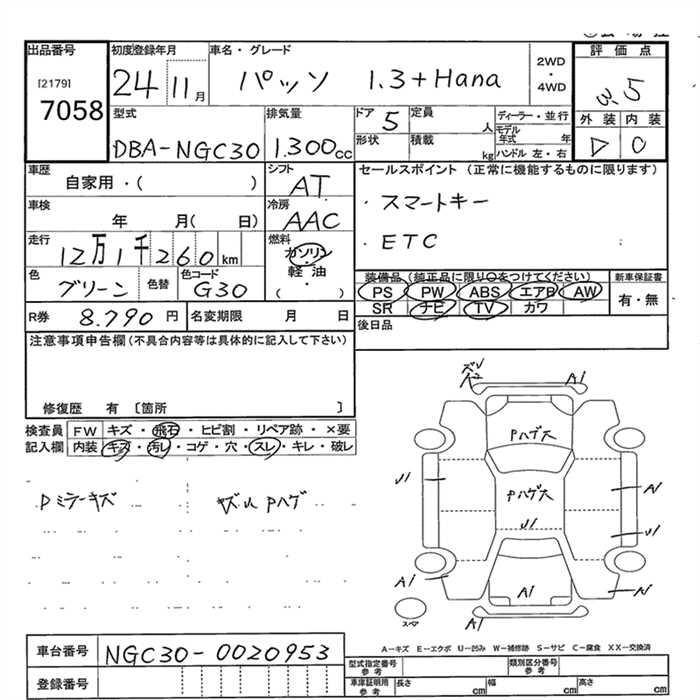 出品番号
[2179]
7058
初度登録年月
24 11月
車名・グレード
パッソ 1.3+Hana
2WD
・
4WD
評価点
3.5
外装 内装
D
型式
DBA-NGC30
排気量
1.300cc
ドア 5
形状
定員
人
積載
kg
ディーラー・並行
モデル年式 年
ハンドル 左・右
車歴
自家用・( )
シフト
AT
セールスポイント (正常に機能するものに限ります)
・スマートキー
・ETC
車検
年 月( 日)
冷房
AAC
走行
12万1千260km
燃料
ガソリン
・
軽油
( )
色
グリーン
色替
色コード
G30
装備品(純正品に限り○をつけてください)
PS PW ABS エアB AW
SR ナビ TV カワ
新車保証書
有・無
R券 8.790円
名変期限 月 日
後日品
注意事項申告欄(不具合内容等は具体的に記入して下さい)
修復歴 有 〔箇所 〕
検査員記入欄
FW キズ・飛石・ヒビ割・リペア跡・×要
内装 キズ・汚レ・コゲ・穴・スレ・キレ・破レ
Dミラーキズ
キズU Pハゲ
A1
Pハゲ大
U1
Pハゲ大
A1
U1
U1
A1
A1
A1
A1
スペア
A-キズ E-エクボ U-凹み W-補修跡 S-サビ C-腐食 XX-交換済
車台番号
NGC30-0020953
登録番号
型式指定番号
参考
類別区分番号
参考
車庫証明用
参考
長さ cm
幅 cm
高さ cm